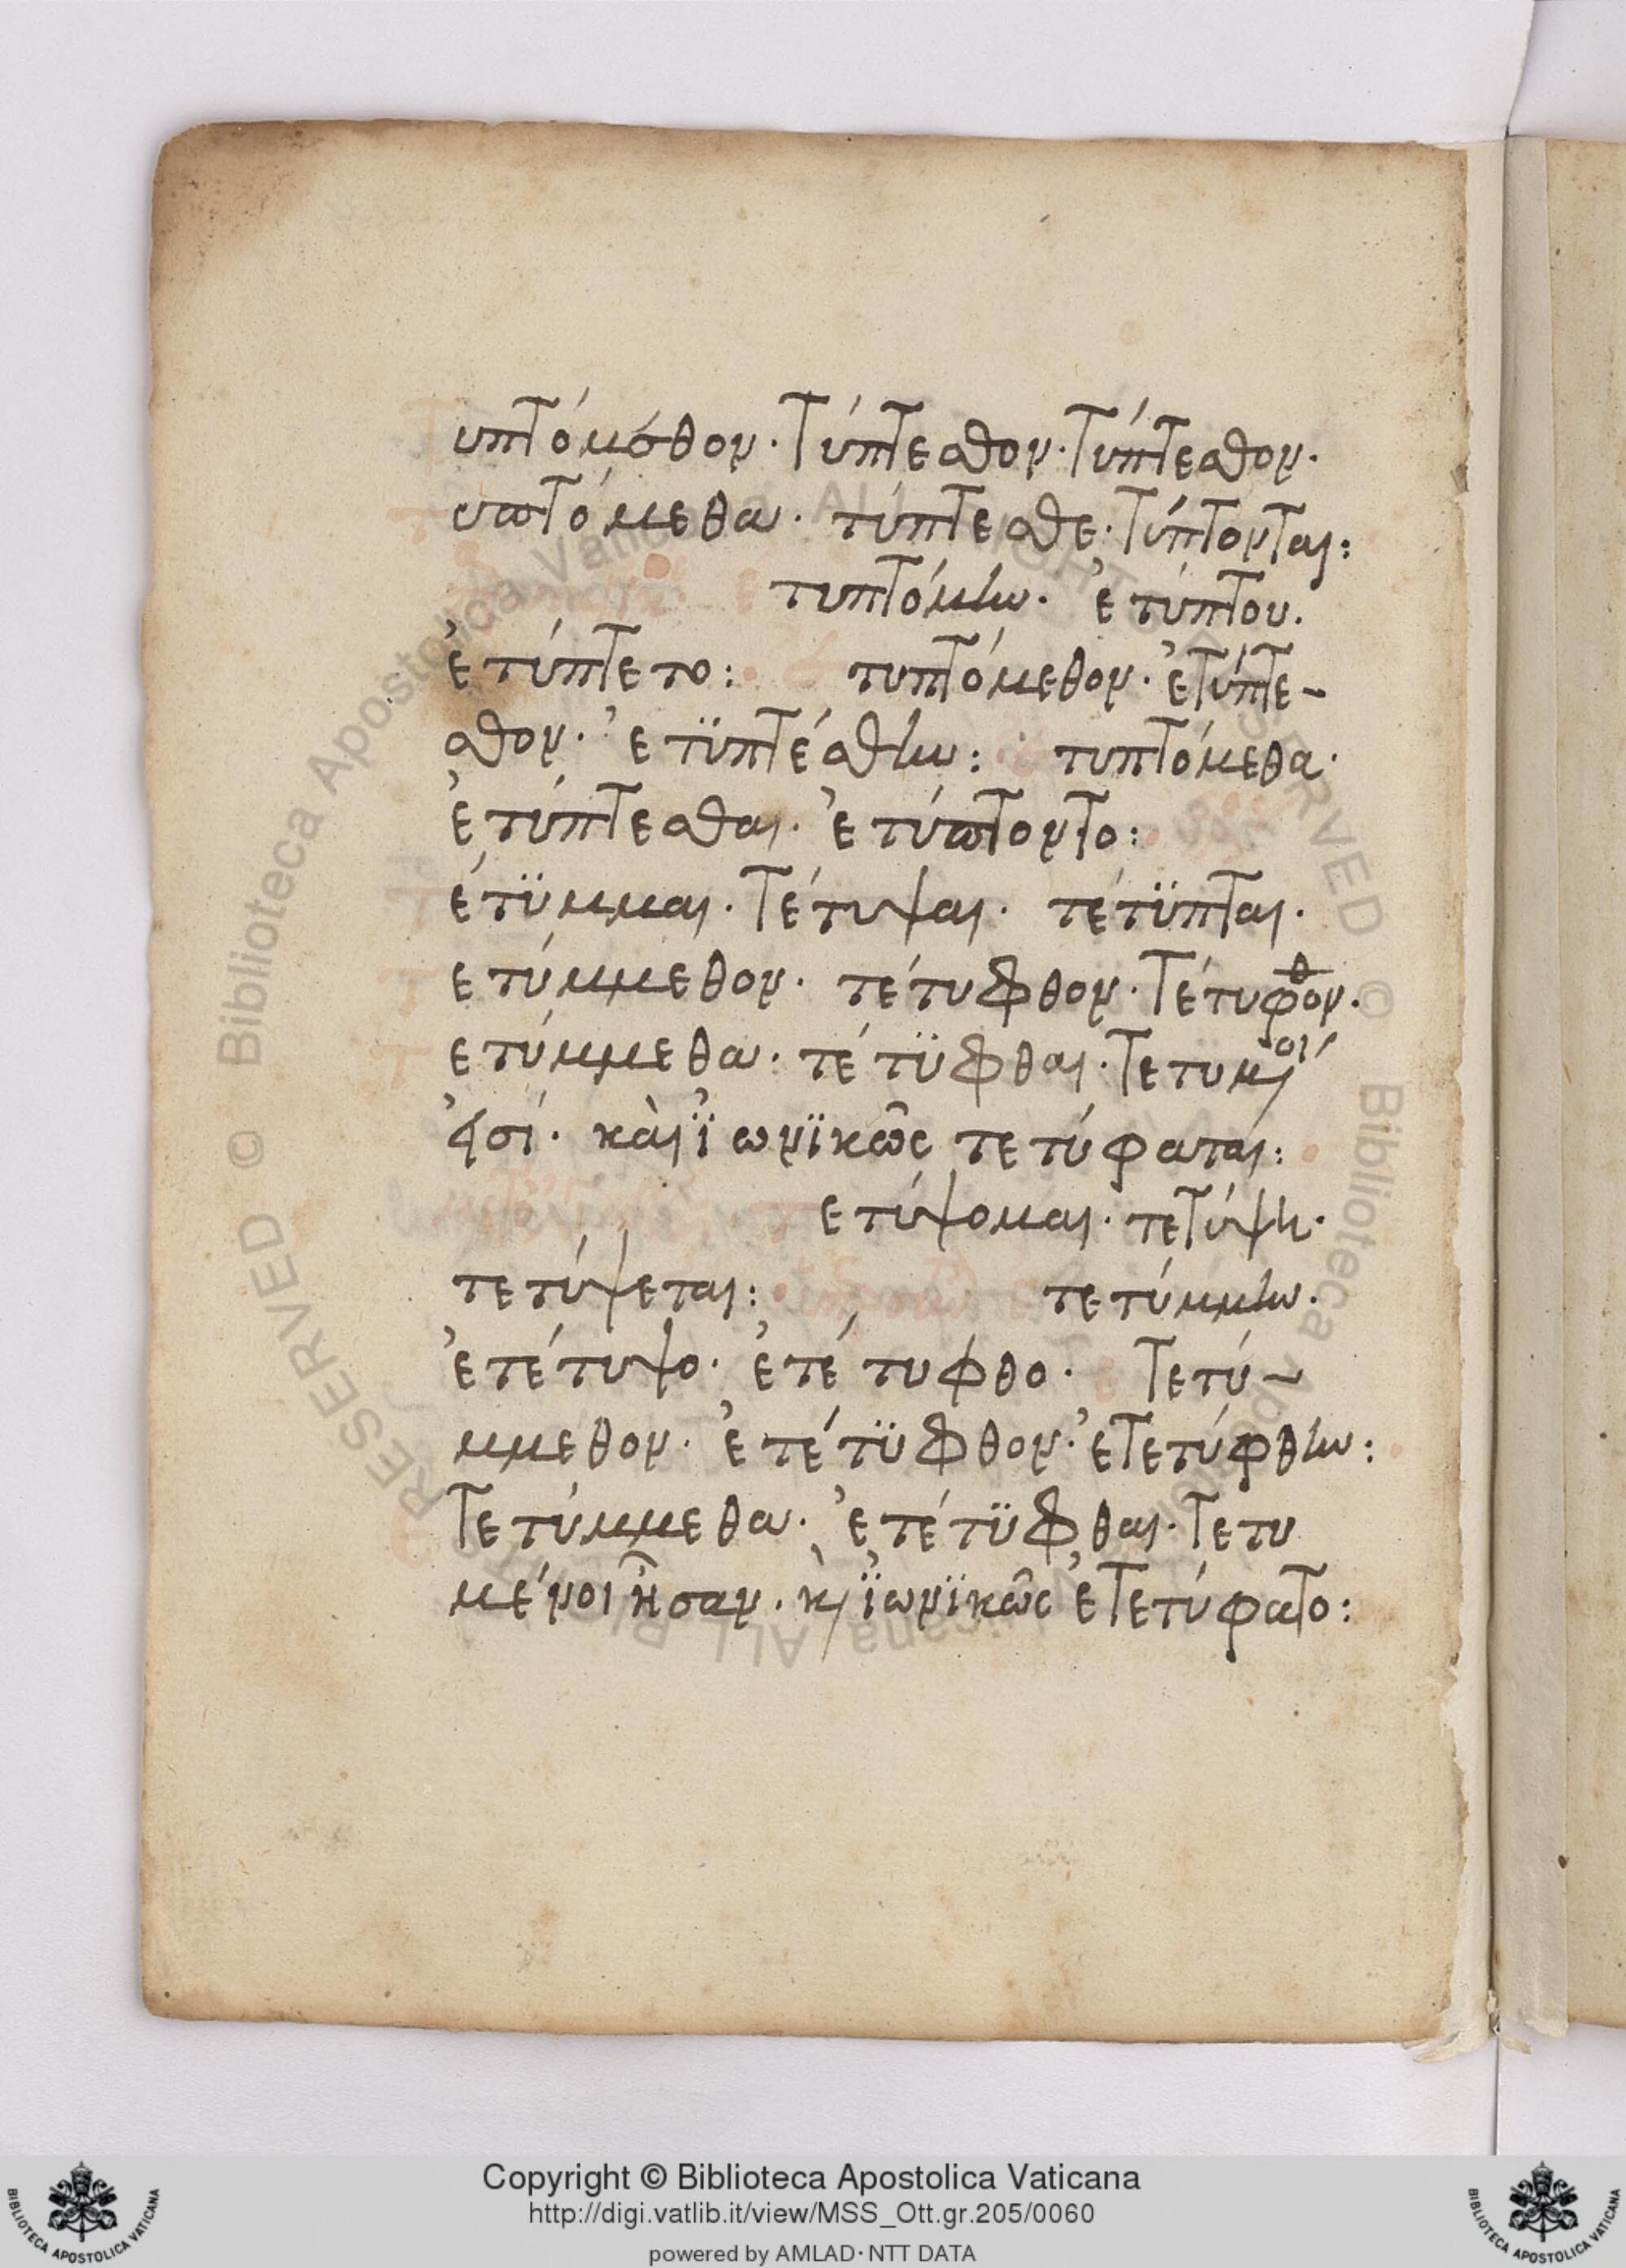 υπτόμεθον· τύπτεσθον· τύπτεσθον·
υπτόμεθα· τύπτεσθε· τύπτονται:
τυπτόμην· ἐτύπτου·
ἐτύπτετο: τυπτόμεθον· ἐτύπτε-
σθον· ἐτϋπτέσθην: τυπτόμεθα·
ἐτύπτεσθαι· ἐτύπτοντο:
έτϋμμαι· τέτυψαι· τέτϋπται·
ετύμμεθον· τέτυφθον· τέτυφθον·
ετύμμεθα· τέτϋφθαι· τετυμένοι
εἰσί· καὶ ἰωνϊκῶς τετύφαται:
ετύψομαι· τετύψῃ·
τετύψεται: τετύμμην·
ἐτέτυψο· ἐτέτυφθο· τετύ-
μμεθον· ἐτέτϋφθον· ἐτετύφθην:
τετύμμεθα· ἐτέτϋφθαι· τετυ
μένοι ἦσαν· κὶ ἰωνϊκῶς ἐτετύφατο:
Copyright © Biblioteca Apostolica Vaticana
http://digi.vatlib.it/view/MSS_Ott.gr.205/0060
powered by AMLAD·NTT DATA
BIBLIOTECA APOSTOLICA VATICANA
BIBLIOTECA APOSTOLICA VATICANA